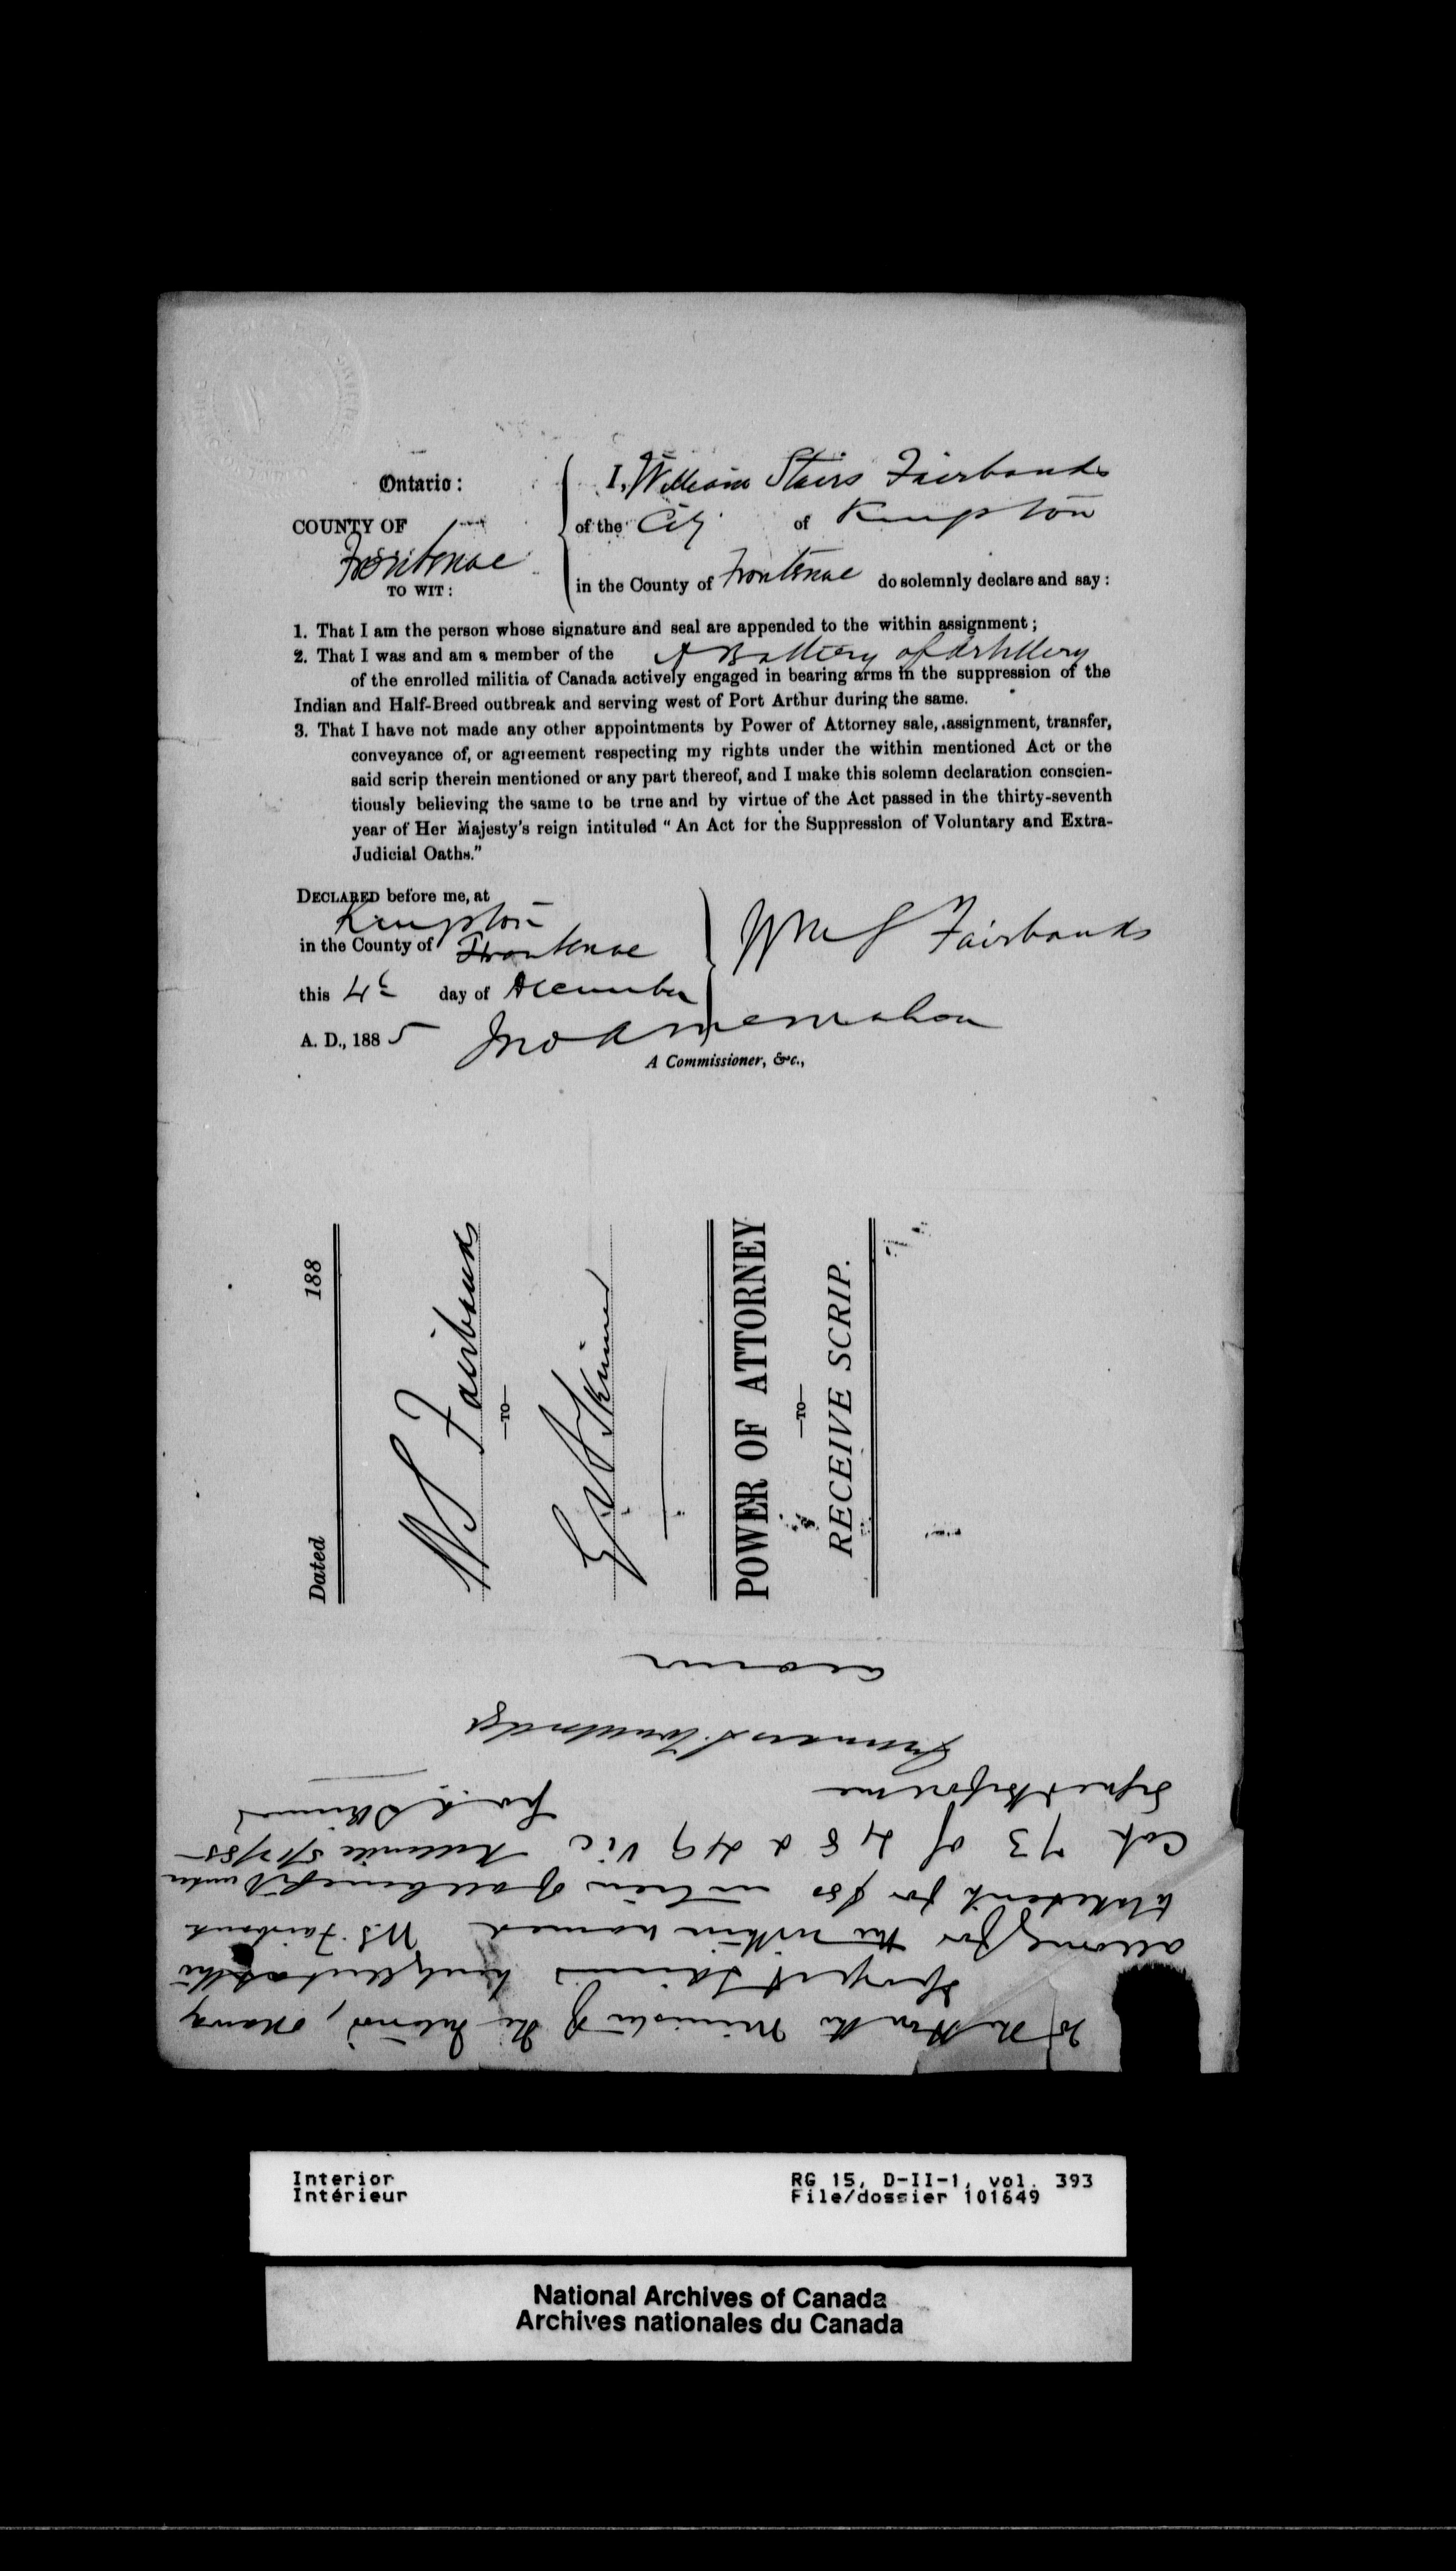 Ontario:
COUNTY OF
Frontenac
TO WIT:
I, William Stairs Fairbanks
of the City of Kingston
in the County of Frontenac do solemnly declare and say:
1. That I am the person whose signature and seal are appended to the within assignment;
2. That I was and am a member of the A Battery of Artillery
of the enrolled militia of Canada actively engaged in bearing arms in the suppression of the
Indian and Half-Breed outbreak and serving west of Port Arthur during the same.
3. That I have not made any other appointments by Power of Attorney sale, assignment, transfer,
conveyance of, or agreement respecting my rights under the within mentioned Act or the
said scrip therein mentioned or any part thereof, and I make this solemn declaration conscien-
tiously believing the same to be true and by virtue of the Act passed in the thirty-seventh
year of Her Majesty's reign intituled "An Act for the Suppression of Voluntary and Extra-
Judicial Oaths."
DECLARED before me, at
Kingston
in the County of Frontenac
this 4th day of December
A. D., 1885
Wm S Fairbanks
Jno A McMahon
A Commissioner, &c.,
Dated 188
W S Fairbanks
—TO—
Skinner
POWER OF ATTORNEY
—TO—
RECEIVE SCRIP.
To the Hon the Minister of the Interior, Ottawa
attorney for the within named W.S. Fairbanks
for $80 in lieu of all benefit under
Cap 73 of 48 & 49 Vic
Signed before me
Skinner
Interior
Intérieur
RG 15, D-II-1, vol. 393
File/dossier 101649
National Archives of Canada
Archives nationales du Canada